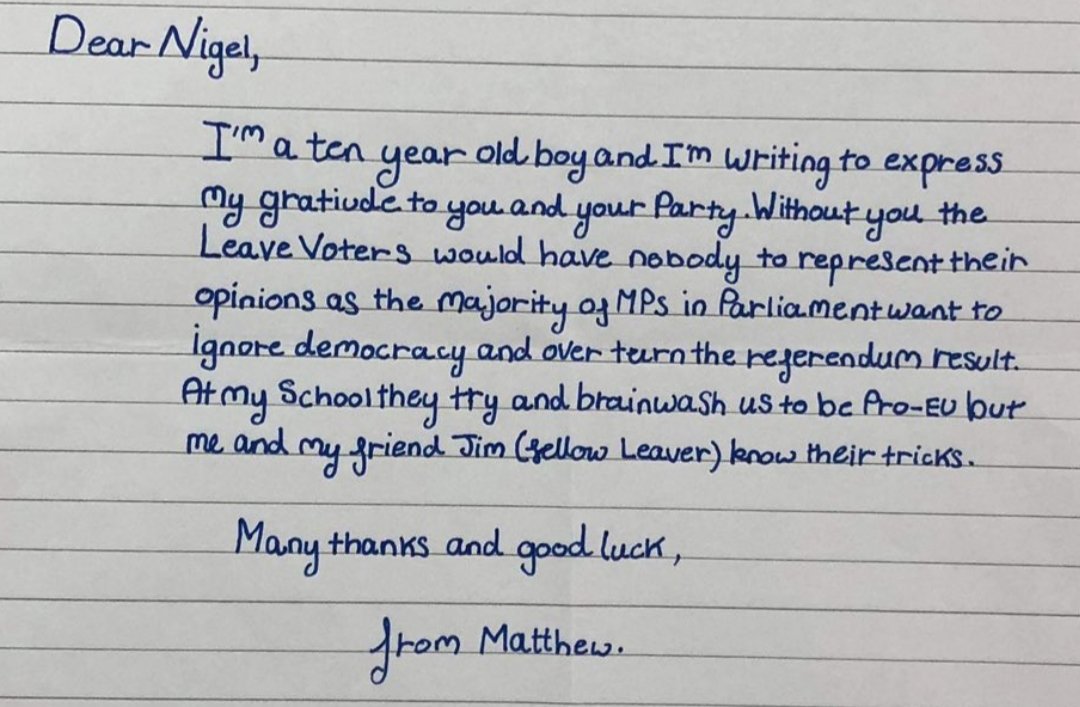 Dear Nigel,
I'm a ten year old boy and I'm writing to express
my gratiude to you and your Party. Without you the
Leave Voters would have nobody to represent their
opinions as the majority of MPs in Parliament want to
ignore democracy and over turn the referendum result.
At my School they try and brainwash us to be Pro-EU but
me and my friend Jim (fellow Leaver) know their tricks.
Many thanks and good luck,
from Matthew.